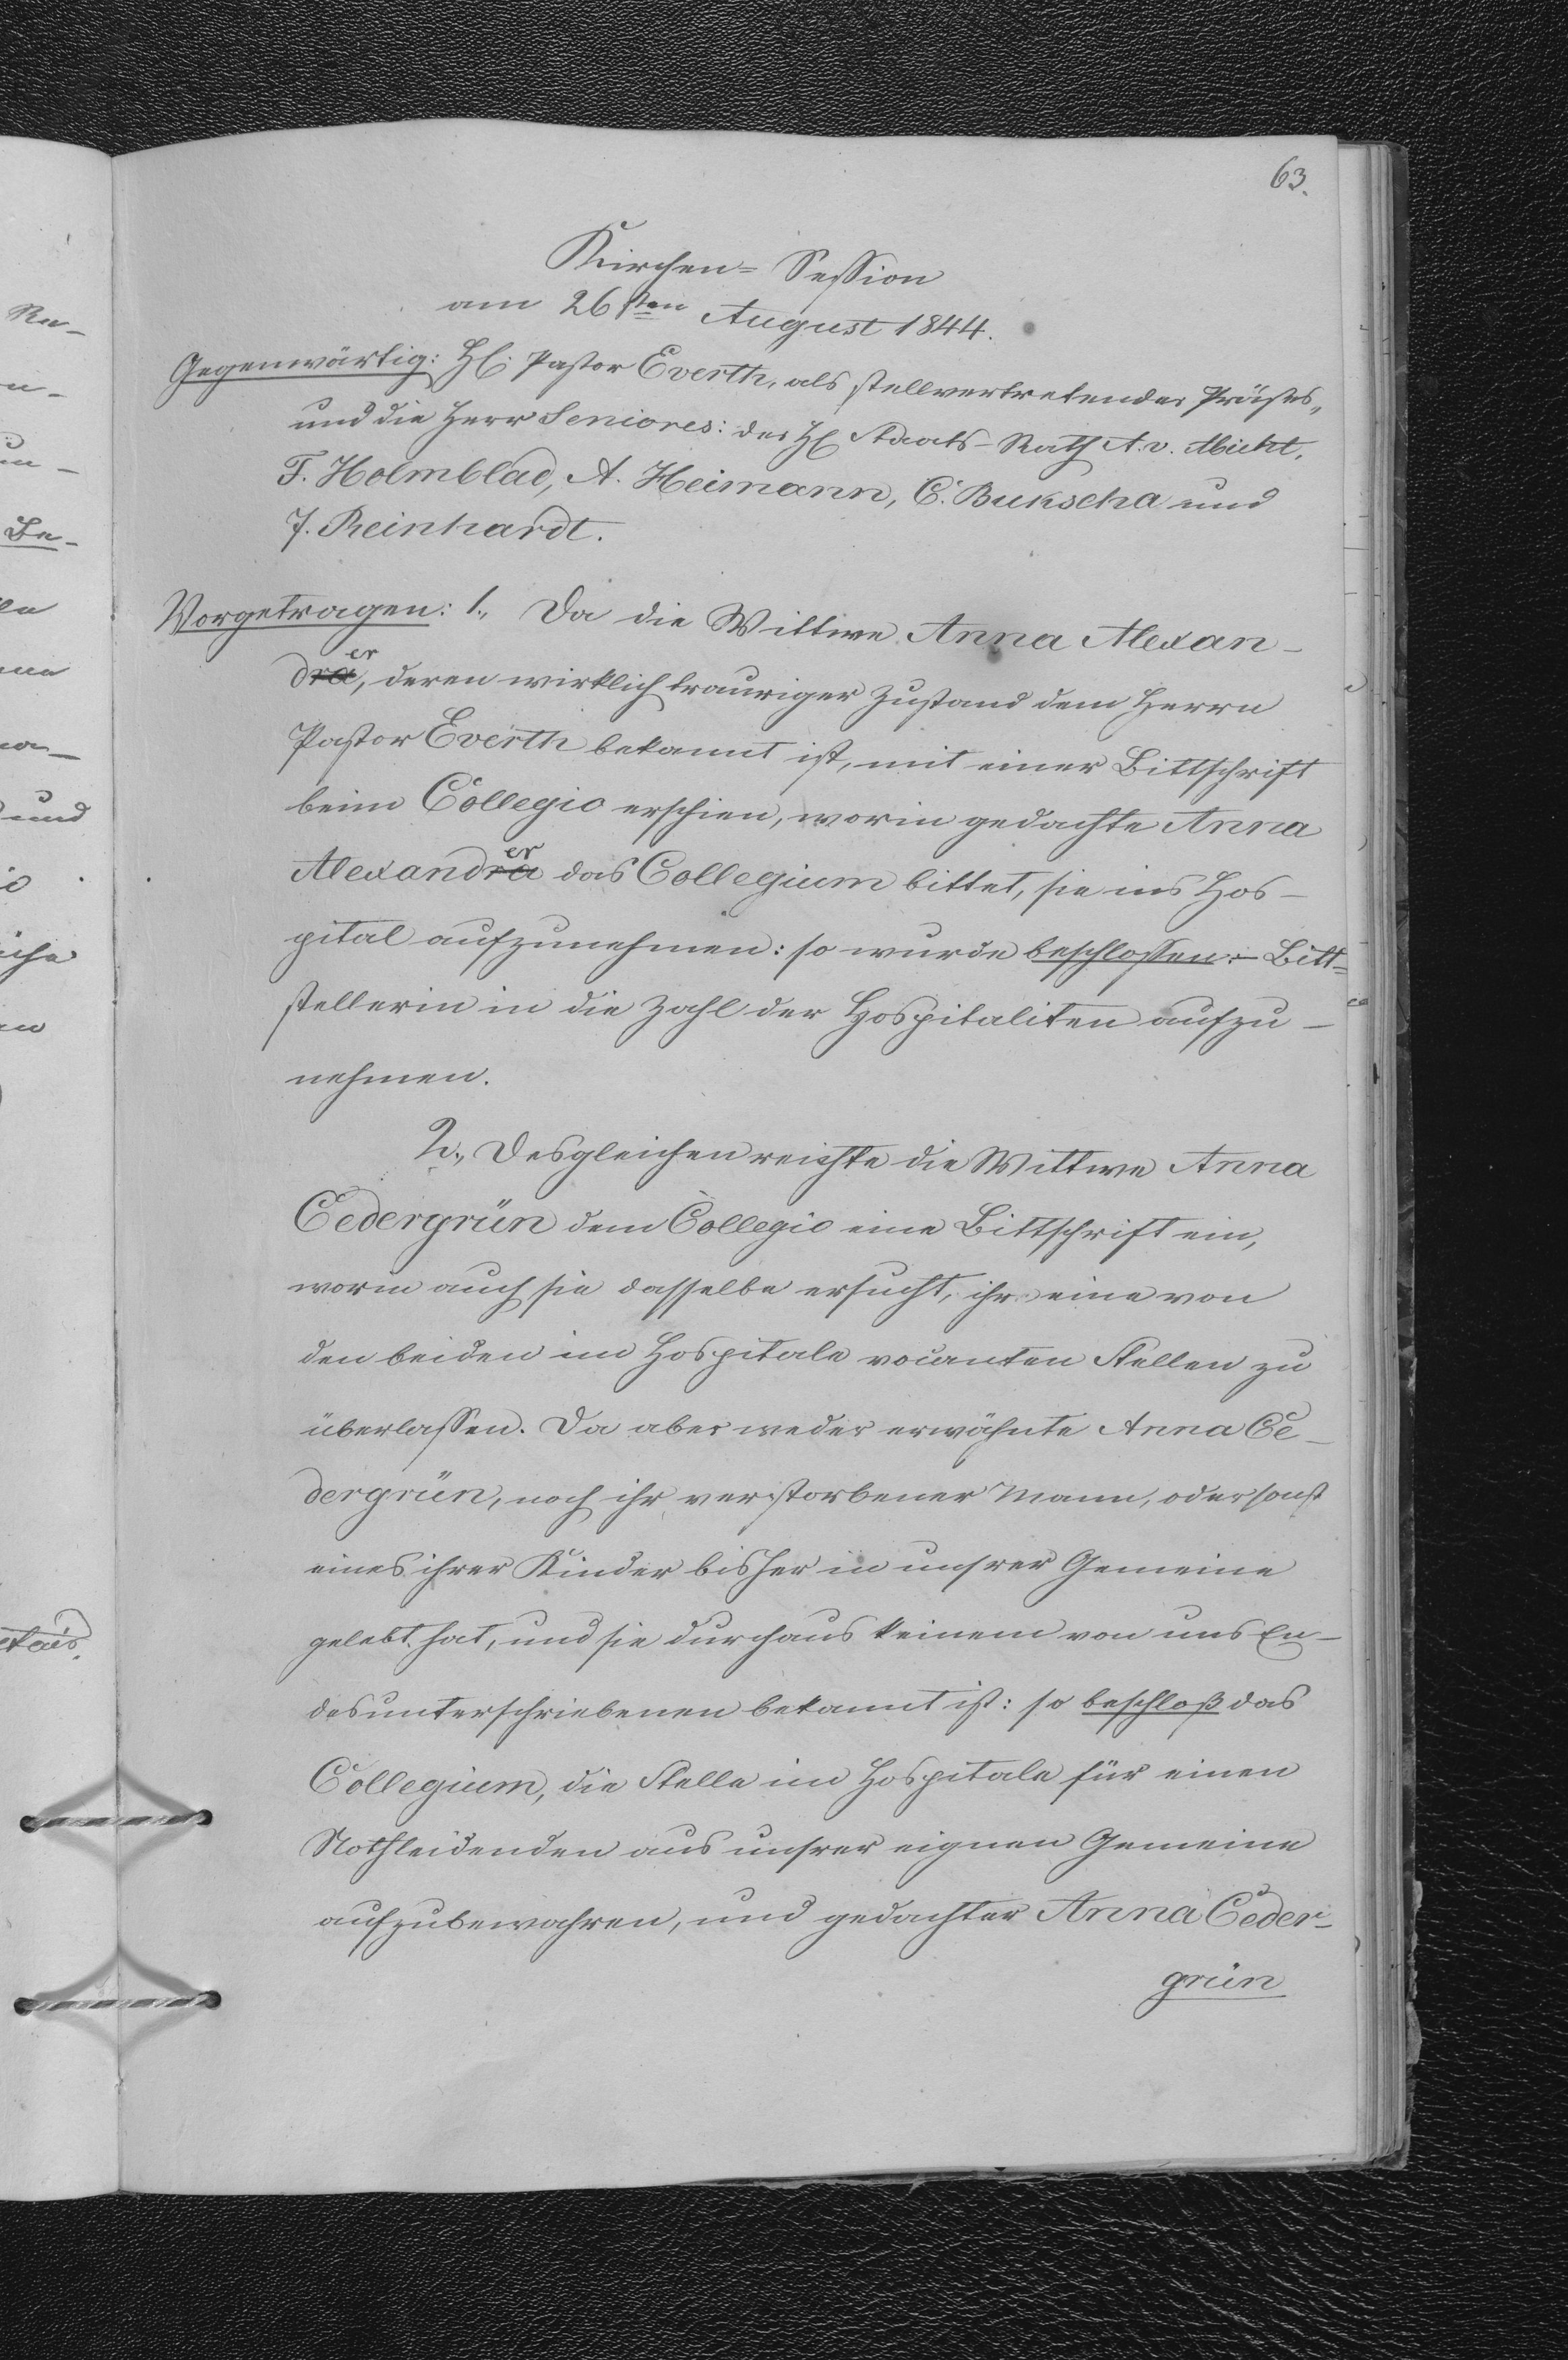 63.
Kirchen= Session
am 26sten August 1844.
Gegenwärtig: H. Pastor Everth, als stellvertretender Präses,
und die Herr Seniores: der H Staats-Rath A. v. Micht,
F. Holmblad, A. Heimann, C. Bukscha und
J. Reinhardt.
Vorgetragen: 1., Da die Wittwe Anna Alexan-
er
dra, deren wirklich trauriger Zustand dem Herrn
Pastor Everth bekannt ist, mit einer Bittschrift
beim Collegio erschien, worin gedachte Anna
er
Alexandra das Collegium bittet, sie ins Hos-
pital aufzunehmen: so wurde beschlossen:- Bitt=
stellerin in die Zahl der Hospitaliten aufzu-
nehmen.
2., Desgleichen reichte die Wittwe Anna
Cedergrün dem Collegio eine Bittschrift ein,
worin auch sie dasselbe ersucht, ihr eine von
den beiden im Hospitale vacanten Stellen zu
überlassen. Da aber weder erwähnte Anna Ce-
dergrün, noch ihr verstorbener Mann, oder sonst
eines ihrer Kinder bisher in unsrer Gemeine
gelebt hat, und sie durchaus keinem von uns En-
desunterschriebenen bekannt ist: so beschloß das
Collegium, die Stelle im Hospitale für einen
Nothleidenden aus unsrer eignen Gemeine
aufzubewahren, und gedachter Anna Ceder-
grün